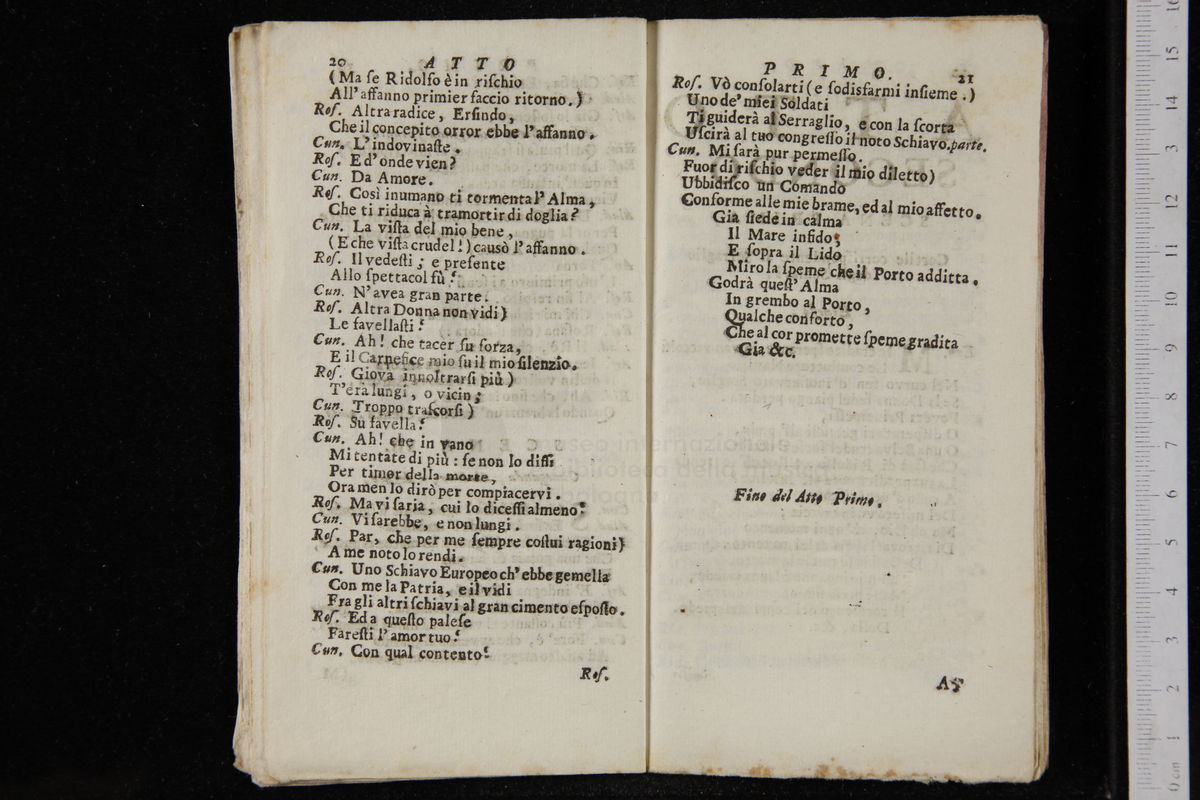 20 ATTO
(Ma ſe Ridolfo è in riſchio
All'affanno primier faccio ritorno.)
Roſ. Altra radice, Erſindo,
Che il concepito orror ebbe l'affanno.
Cun. L'indovinaſte.
Roſ. E d'onde vien?
Cun. Da Amore.
Roſ. Così inumano ti tormenta l'Alma,
Che ti riduca à tramortir di doglia?
Cun. La viſta del mio bene,
(E che viſta crudel!) causò l'affanno.
Roſ. Il vedeſti; e preſente
Allo ſpettacol fù?
Cun. N'avea gran parte.
Roſ. Altra Donna non vidi)
Le favellaſti?
Cun. Ah! che tacer fu forza,
E il Carnefice mio fu il mio ſilenzio.
Roſ. Giova innoltrarſi più)
T'era lungi, o vicin;
Cun. Troppo traſcorſi)
Roſ. Sù favella?
Cun. Ah! che in vano
Mi tentate di più: ſe non lo diſſi
Per timor della morte,
Ora men lo dirò per compiacervi.
Roſ. Ma vi ſaria, cui lo diceſſi almeno?
Cun. Vi ſarebbe, e non lungi.
Roſ. Par, che per me ſempre coſtui ragioni)
A me noto lo rendi.
Cun. Uno Schiavo Europeo ch'ebbe gemella
Con me la Patria, e il vidi
Fra gli altri ſchiavi al gran cimento eſpoſto.
Roſ. Ed a queſto paleſe
Fareſti l'amor tuo?
Cun. Con qual contento?
Roſ.
PRIMO. 21
Roſ. Vò conſolarti (e ſodisfarmi inſieme.)
Uno de' miei Soldati
Ti guiderà al Serraglio, e con la ſcorta
Uſcirà al tuo congreſſo il noto Schiavo. parte.
Cun. Mi ſarà pur permeſſo.
Fuor di riſchio veder il mio diletto)
Ubbidiſco un Comando
Conforme alle mie brame, ed al mio affetto.
Gia ſiede in calma
Il Mare infido;
E ſopra il Lido
Miro la ſpeme che il Porto additta.
Godrà queſt'Alma
In grembo al Porto,
Qualche conforto,
Che al cor promette ſpeme gradita
Gia &c.
Fine del Atto Primo.
museo internazionale
biblioteca della musica